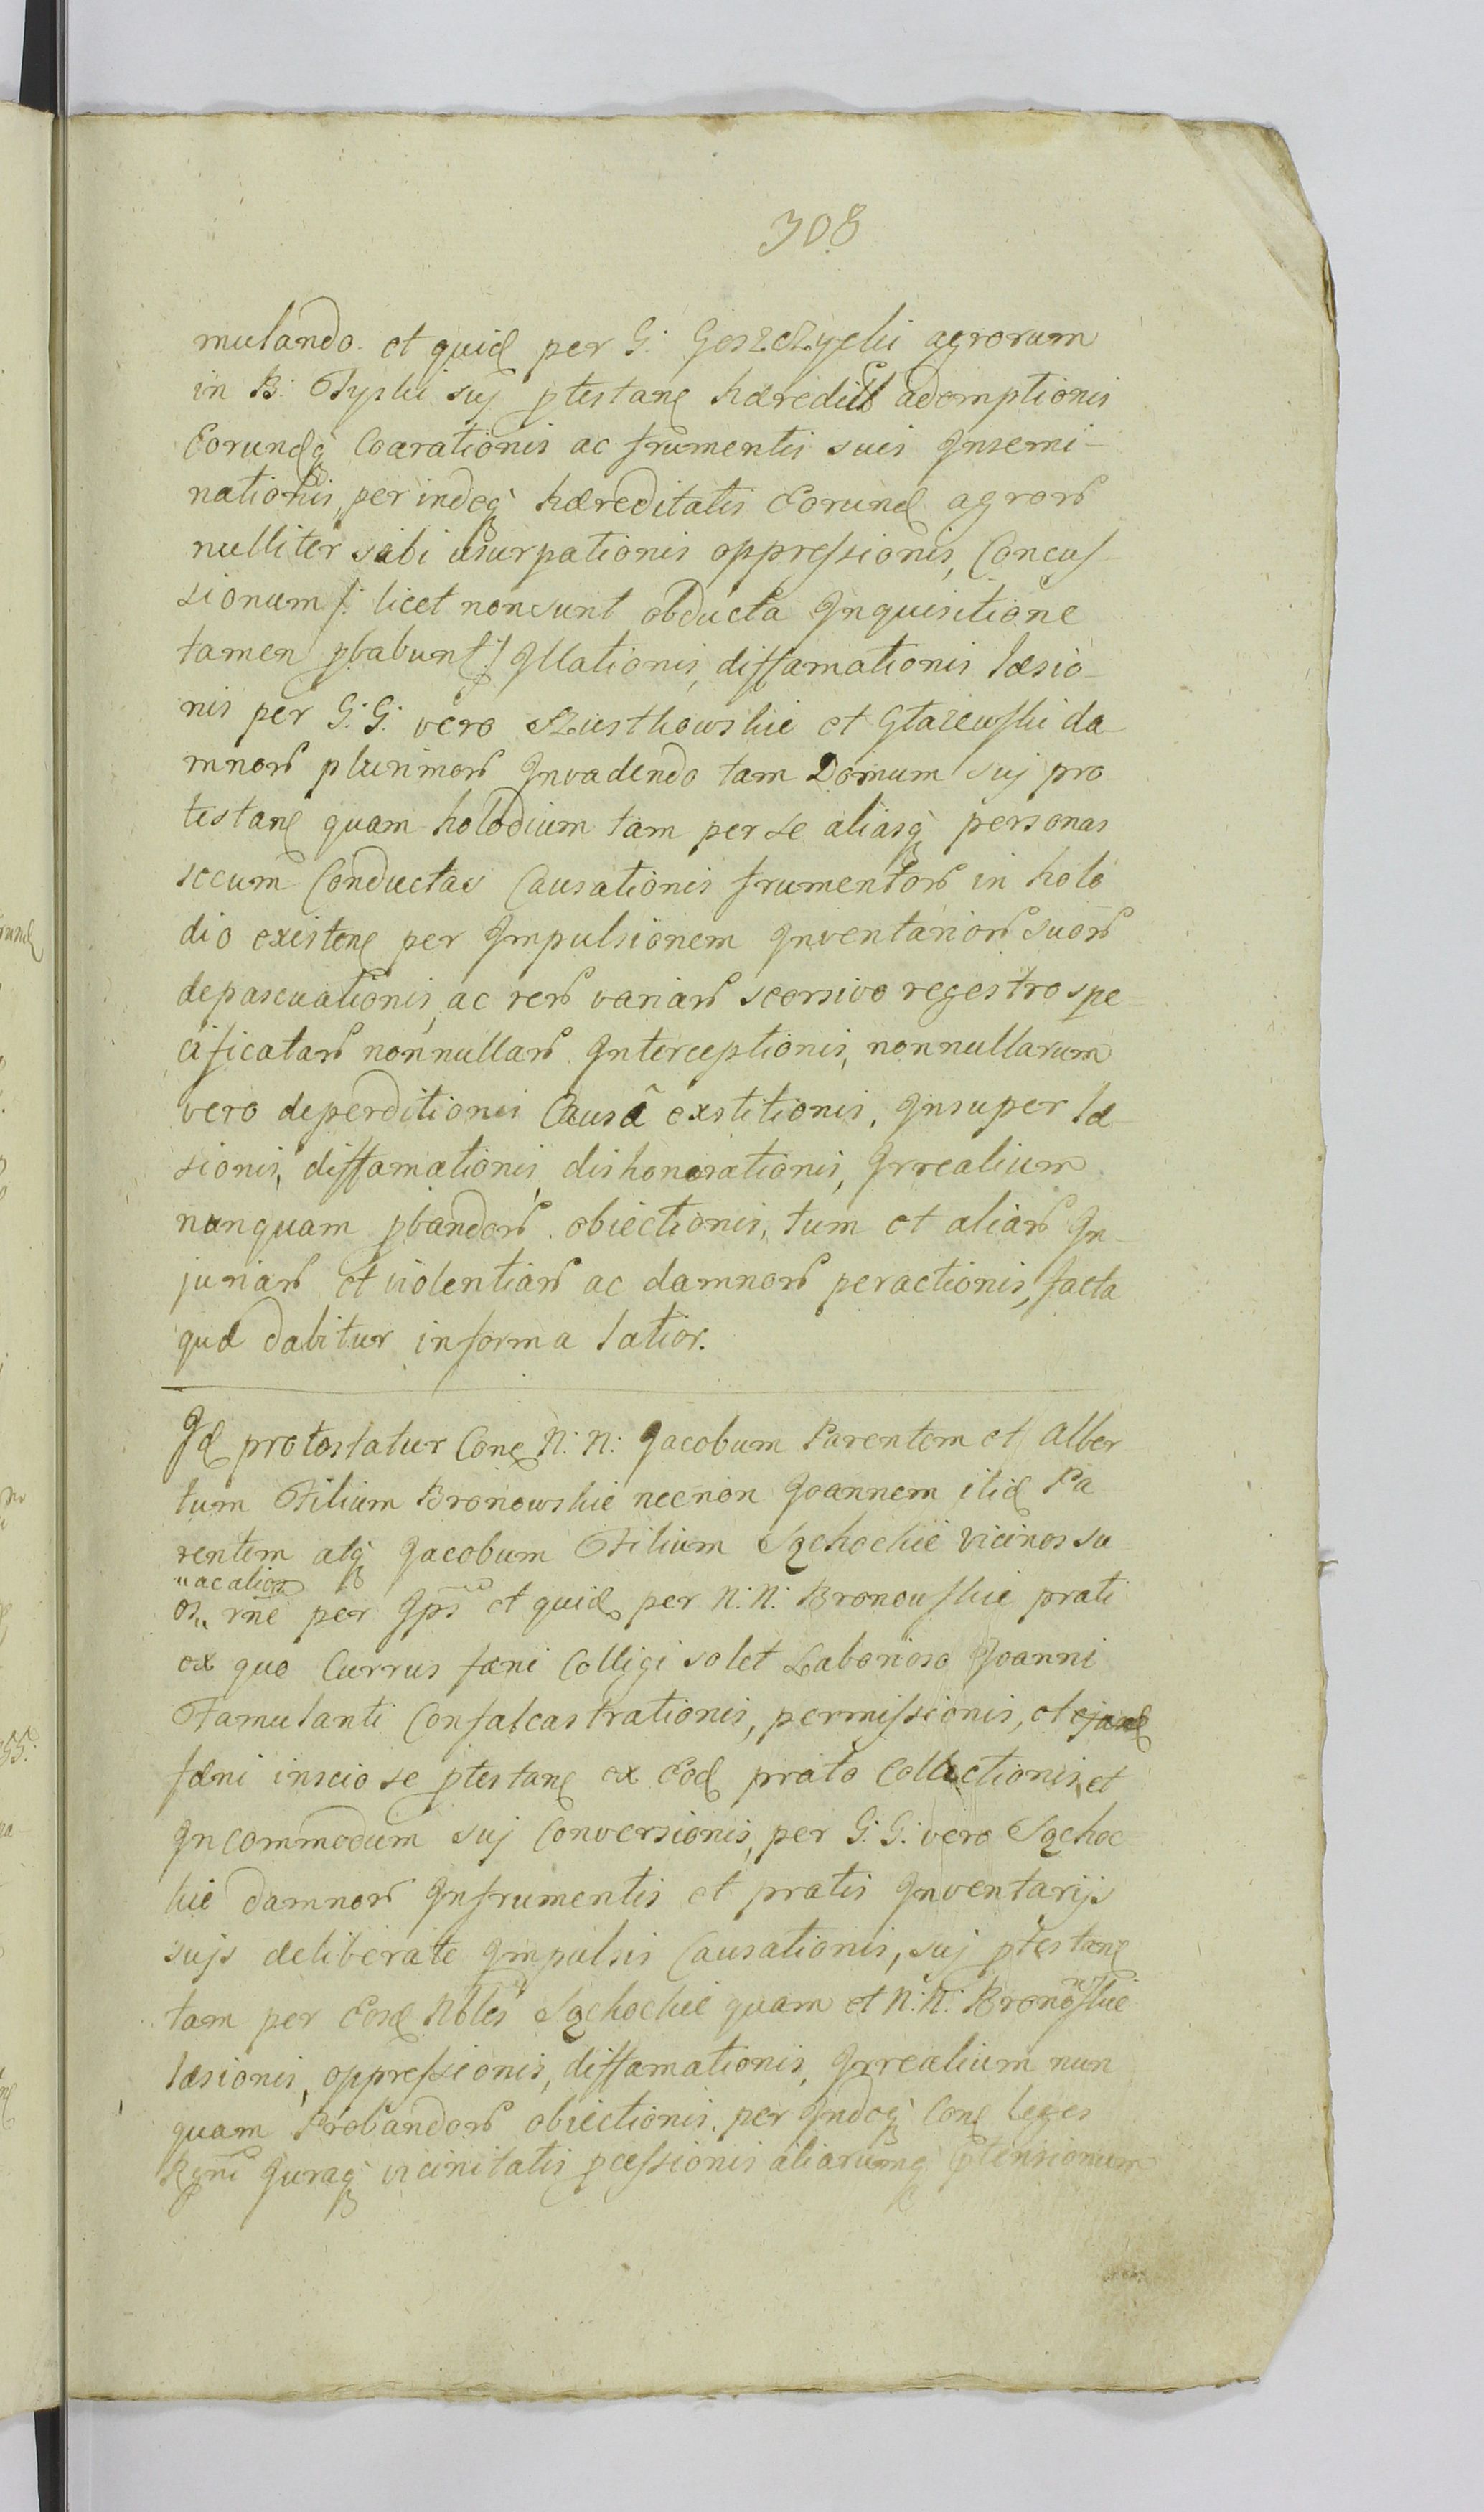 308
mulando et quid per G: Goszczycki agrorum
in B: Tyski suj ptestan hæredit ademptionis
Eorundq Coarationis ac frumentis suis Insemi-
nationis, per indeq hæreditatis Eorund agror
nulliter sibi usurpationis oppressionis, Concus-
sionum /: licet non sunt obducta Inquisitione
tamen pbabunt :/ Illationis, diffamationis læsio-
nis per G: G: vero et da
mnor plurimor Invadendo tam Domum suj pro
testan quam holodium tam per se aliasq personas
secum Conductas Causationis frumentor in holo
dio existen per Impulsionem Inventarior suor
depascuationis, ac rer variar seorsivo regestro spe-
cificatar nonnullar Interceptionis, nonnullarum
vero deperditionis Causâ exstitionis, Insuper læ-
sionis, diffamationis, dishonorationis, Irrealium
nunquam pbandor obiectionis, tum et aliar In-
juriar et violentiar ac damnor peractionis, facta
quæ dabitur in forma latior.
Id protestatur Con N: N: Jacobum Parentem et Alber
tum Filium Bronowskie necnon Joannem itid Pa
rentem atq Jacobum Filium Sąchockie vicinos su
os rne per Ips et quid per N: N: Bronowskie prati
ex quo Currus fæni Colligi solet Laborioso Joanni
Famulanti Confalcastrationis, permissionis, et
fæni inscio se ptestan ex Eod prato Collectionis, et
In commodum suj Conversionis, per G: G: vero Sąchoc
kie damnor In frumentis et pratis Inventarijs
sujs deliberate Impulsis Causationis, suj ptestan
tam per Eosd Nbles Sąchockie quam et N: N: Bronowskie
læsionis, oppressionis, diffamationis, Irrealium nun
quam Probandor obiectionis per Indeq Con leges
Rgni Juraq vicinitatis pcessionis aliarumq ptensionum